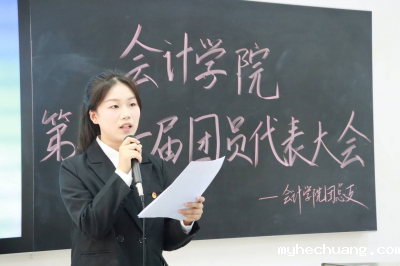 会计学院
第一届团员代表大会
——会计学院团总支
myhechuang.com